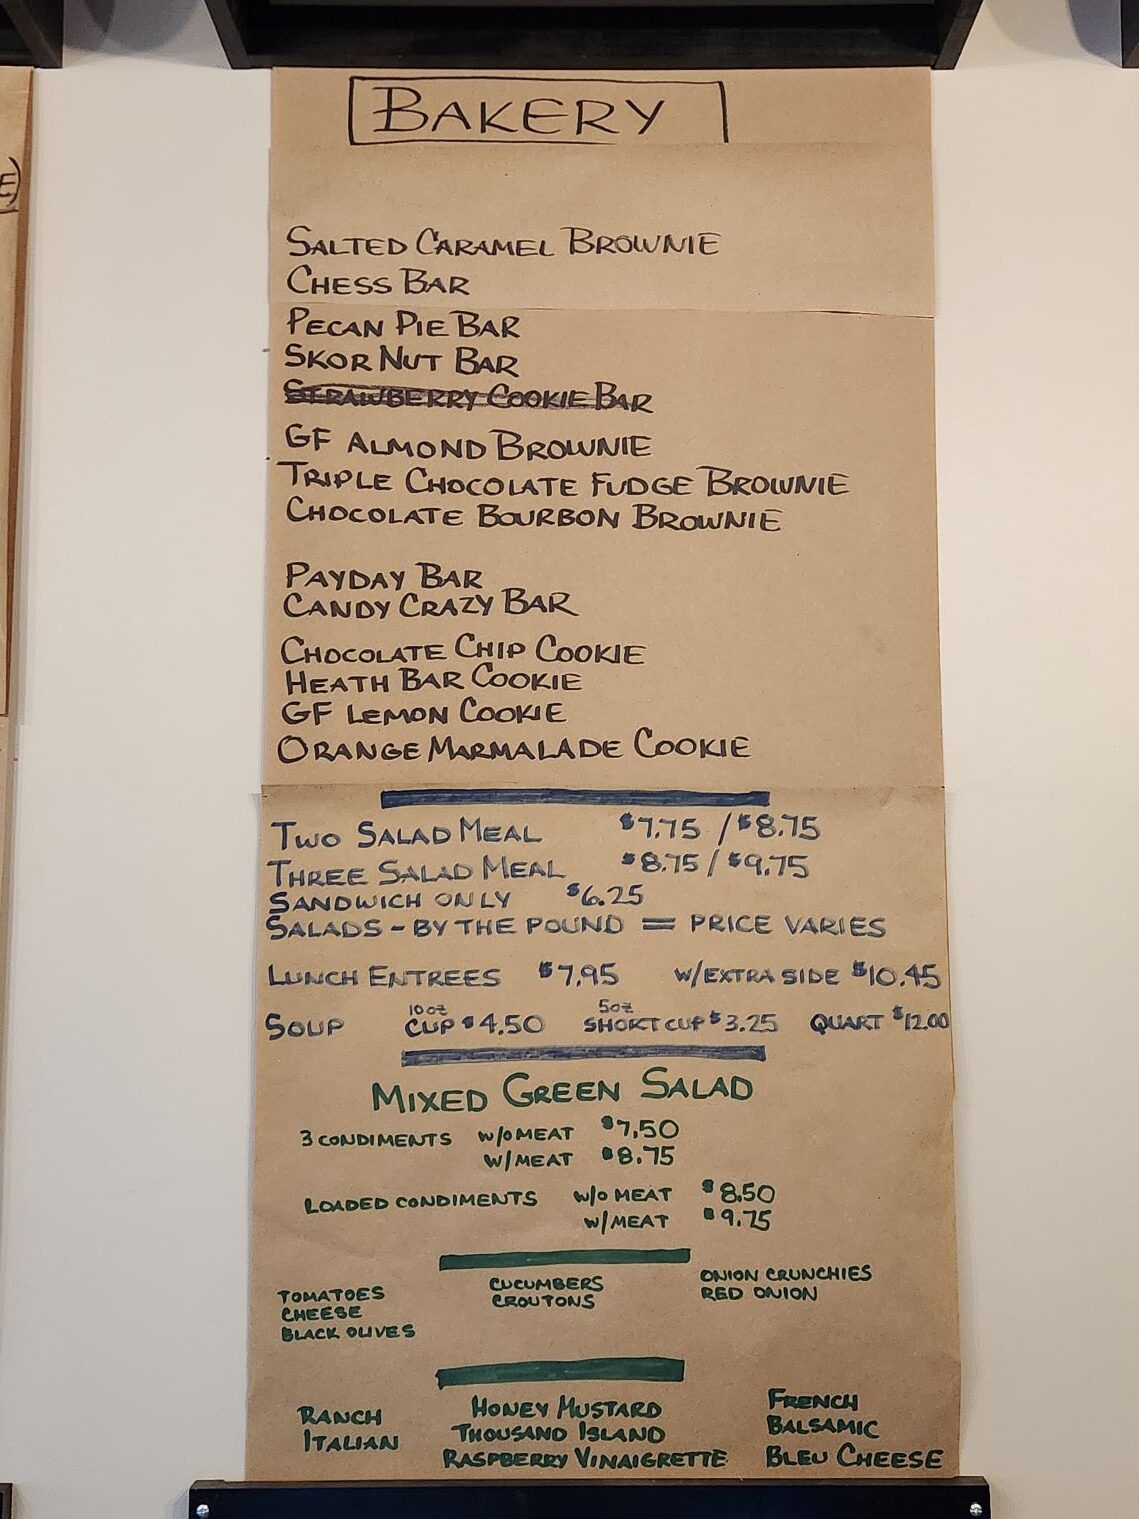 E)
BAKERY
SALTED CARAMEL BROWNIE
CHESS BAR
PECAN PIE BAR
SKOR NUT BAR
STRAWBERRY COOKIE BAR
GF ALMOND BROWNIE
TRIPLE CHOCOLATE FUDGE BROWNIE
CHOCOLATE BOURBON BROWNIE
PAYDAY BAR
CANDY CRAZY BAR
CHOCOLATE CHIP COOKIE
HEATH BAR COOKIE
GF LEMON COOKIE
ORANGE MARMALADE COOKIE
TWO SALAD MEAL $7.75 / $8.75
THREE SALAD MEAL $8.75 / $9.75
SANDWICH ONLY $6.25
SALADS - BY THE POUND = PRICE VARIES
LUNCH ENTREES $7.95 W/EXTRA SIDE $10.45
SOUP 10oz CUP $4.50 5oz SHORT CUP $3.25 QUART $12.00
MIXED GREEN SALAD
3 CONDIMENTS W/O MEAT $7.50
W/MEAT $8.75
LOADED CONDIMENTS W/O MEAT $8.50
W/MEAT $9.75
TOMATOES
CHEESE
BLACK OLIVES
CUCUMBERS
CROUTONS
ONION CRUNCHIES
RED ONION
RANCH
ITALIAN
HONEY MUSTARD
THOUSAND ISLAND
RASPBERRY VINAIGRETTE
FRENCH
BALSAMIC
BLEU CHEESE